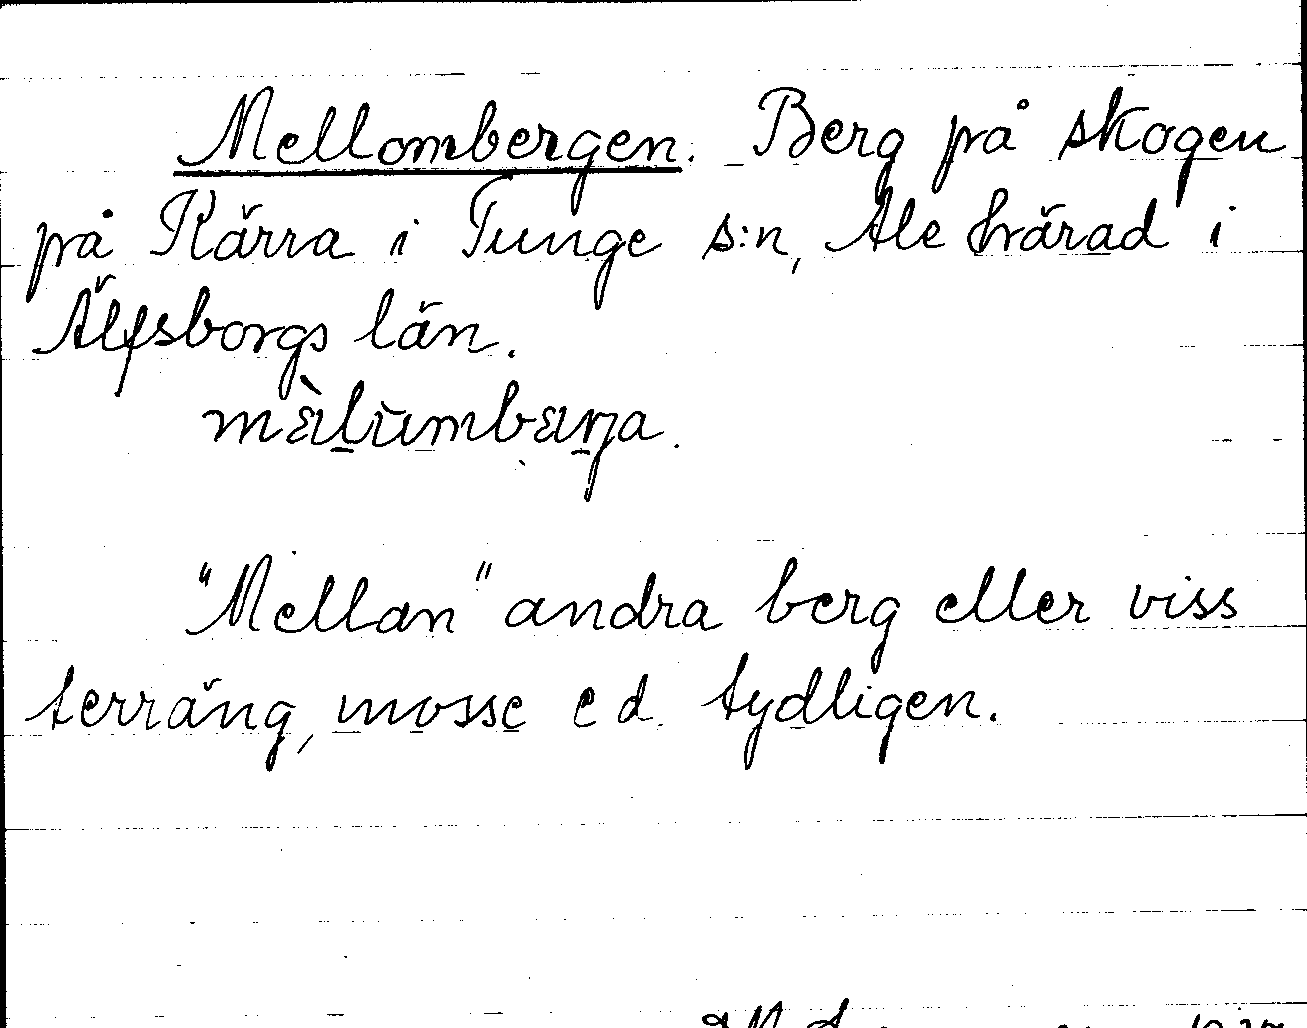 Mellombergen. Berg på skogen
på Kärra i Tunge s:n, Ale härad i
Älfsborgs län.
"Mellan" andra berg eller viss
terräng, mosse e d. tydligen.